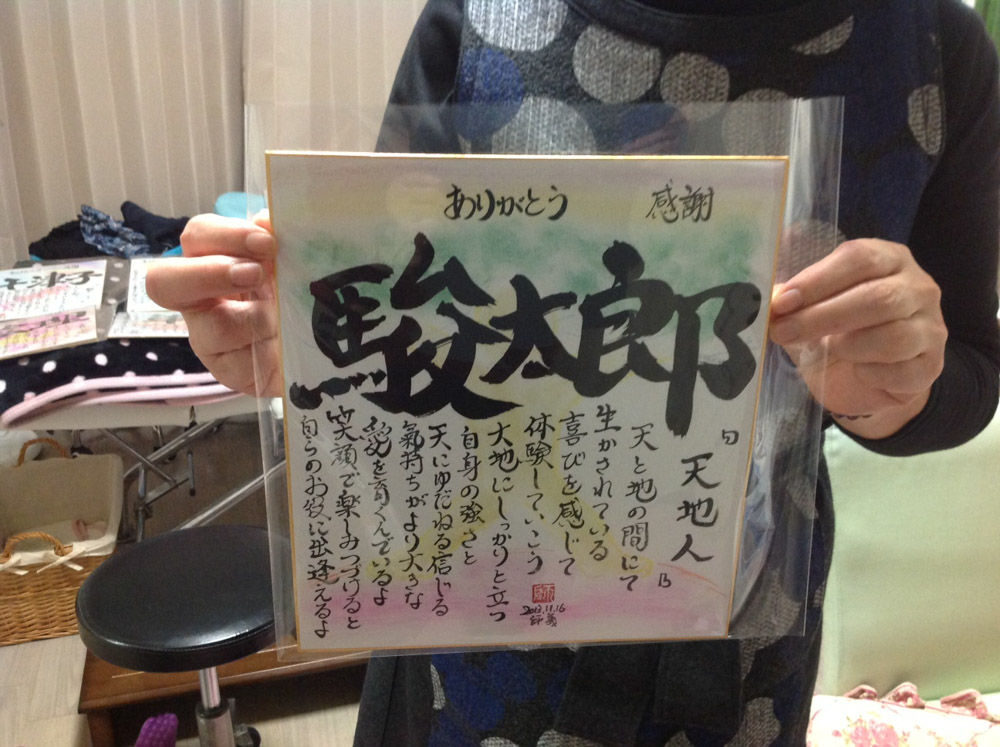 感謝
ありがとう
駿太郎
「天地人」
天と地の間にて
生かされている
喜びを感じて
体験していこう
大地にしっかりと立つ
自身の強さと
天にゆだねる信じる
氣持ちがより大きな
愛を育くんでいるよ
笑顔で楽しみつづけると
自らのお役に出逢えるよ
2013.11.16